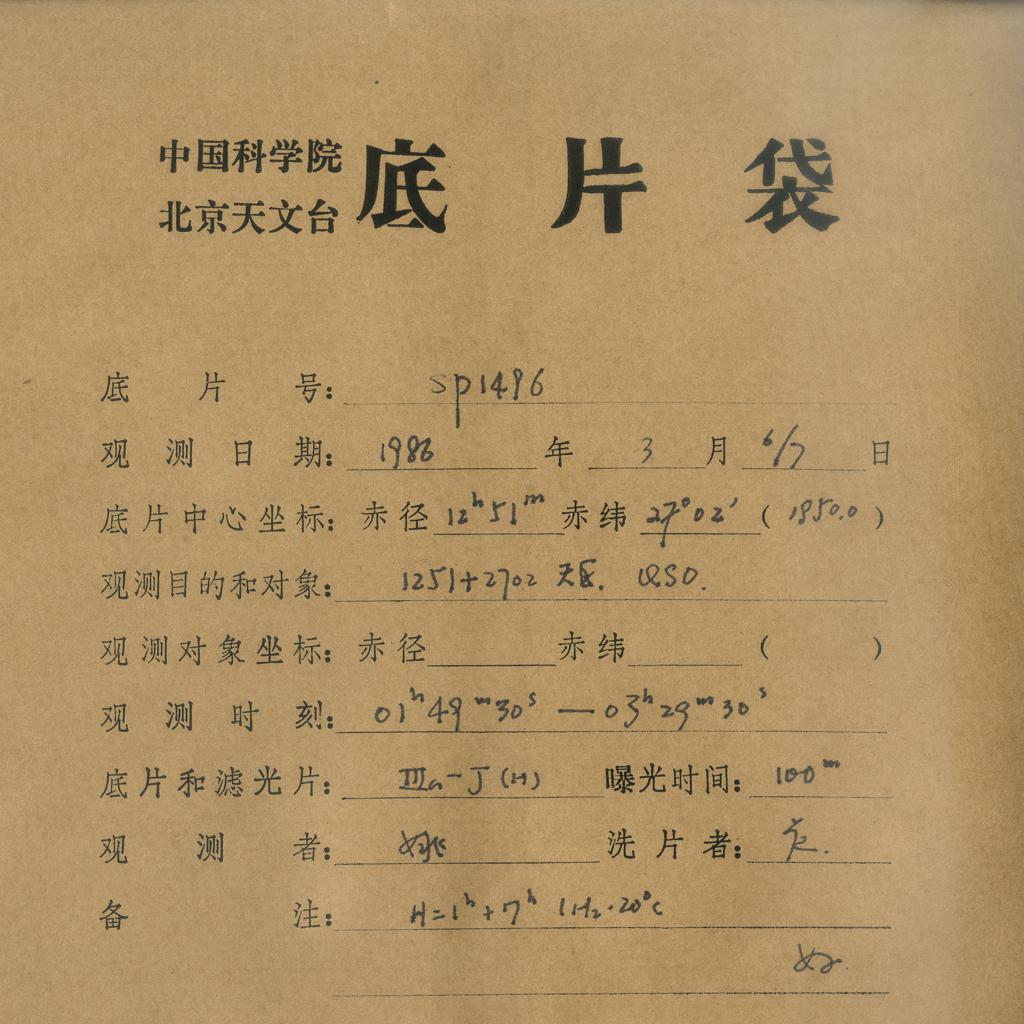 中国科学院
北京天文台
底片袋
底片号: sp1496
观测日期: 1986 年 3 月 6/7 日
底片中心坐标: 赤径 12ʰ51ᵐ 赤纬 27°02′ (1950.0)
观测目的和对象: 1251+2702 天区. QSO.
观测对象坐标: 赤径 赤纬 ( )
观测时刻: 01ʰ49ᵐ30ˢ — 03ʰ29ᵐ30ˢ
底片和滤光片: IIIa-J (H) 曝光时间: 100ᵐ
观测者: 姚 洗片者:
备注: H=1ʰ+7ʰ (H₂·20°C
好.